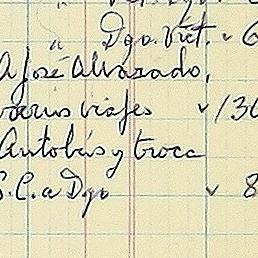 " Dgo. Vict. 6
A José Alvarado,
varios viajes 130
Autobús y troca
S.C. a Dgo 8